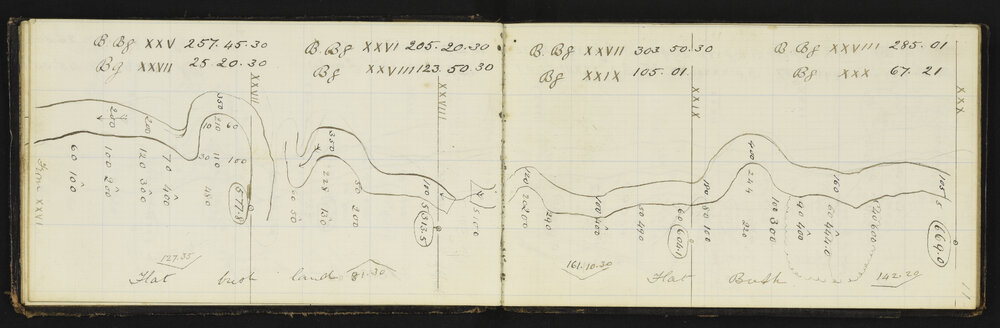 B Bg XXV 257.45.30
Bg XXVII 25.20.30
B Bg XXVI 205.20.30
Bg XXVIII 123.50.30
B Bg XXVII 303 50.30
Bg XXIX 105.01.
B Bg XXVIII 285.01
Bg XXX 67.21
XXVII
XXVIII
XXIX
XXX
From XXVI
200
210
350
210
10
60
60
100
120
70
30
110
100
100
200
300
400
480
577.8
350
228
50
60
50
130
200
110
5
513.5
5.00
120
20
200
240
100
400
50
490
60
604.1
180
80
100
400
244
220
100
300
40
400
160
60
440
600
105
5
664.0
127.35
81.30
161.10.30
142.20
Flat bush land
Flat Bush
11